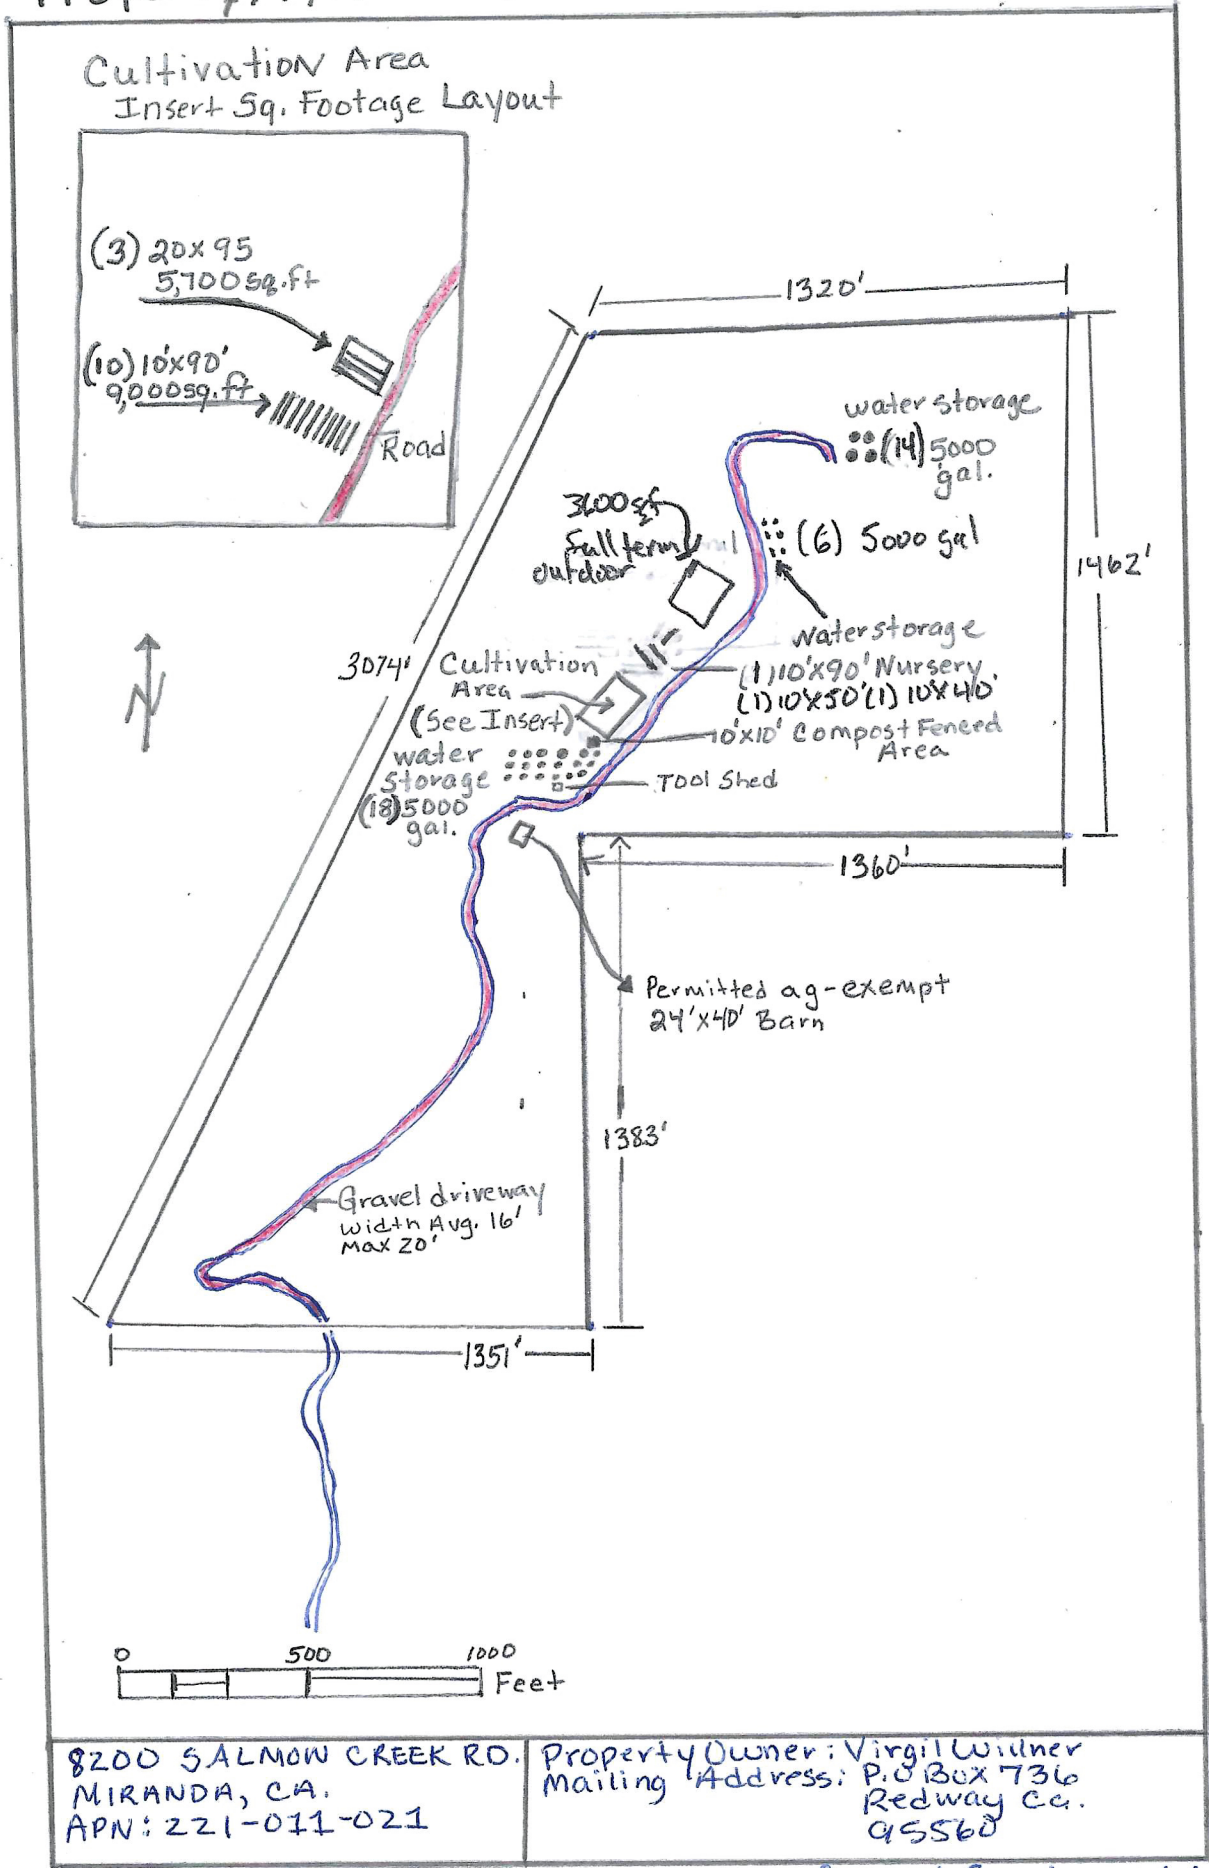 Cultivation Area
Insert Sq. Footage Layout
(3) 20x95
5,700sq.ft
(10) 10'x90'
9,000sq.ft
Road
1320'
water storage
(14) 5000
gal.
3600 sf
full term
outdoor
(6) 5000 gal
1462'
3074'
Water storage
Cultivation
Area
(See Insert)
(1) 10'x90' Nursery
(1) 10'x50' (1) 10'x40'
10'x10' Compost Fenced
Area
water
storage
(18) 5000
gal.
Tool Shed
1360'
Permitted ag-exempt
24'x40' Barn
1383'
Gravel driveway
Width Avg. 16'
Max 20'
1351'
N
0 500 1000
Feet
8200 SALMON CREEK RD.
MIRANDA, CA.
APN: 221-011-021
Property Owner: Virgil Willner
Mailing Address: P.O Box 736
Redway Ca.
95560